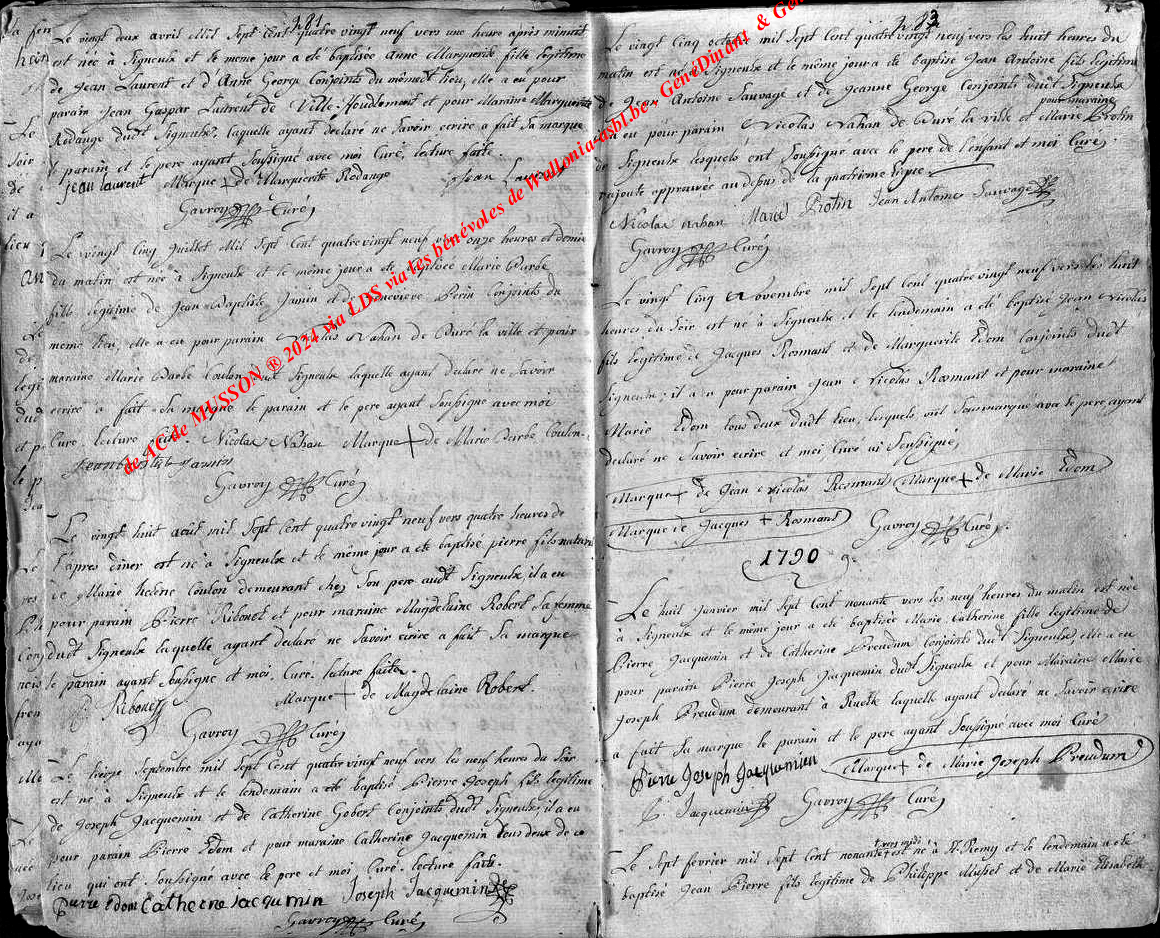 281
Le vingt deux avril Mil Sept Cent quatre vingt neuf vers une heure après minuit
est née à Signeulx et le même jour a été baptisée Anne Marguerite fille legitime
de Jean Laurent et d'Anne George Conjoints du même lieu, elle a eu pour
parain Jean Gaspar Laurent de Ville-Houdlemont et pour Maraine Marguerite
Rodange dudt Signeulx, laquelle ayant declaré ne Savoir ecrire a fait Sa marque
le parain et le pere ayant Soussigné avec moi Curé, lecture faite.
jean laurent Marque + de Marguerite Rodange Jean Laurent
Gavroy Curé
Le vingt Cinq Juillet Mil Sept Cent quatre vingt neuf vers onze heures et demie
du matin est née à Signeulx et le même jour a été baptisée Marie Barbe
fille legitime de Jean Baptiste Jamin et de Genevieve Perin Conjoints du
même lieu, elle a eu pour parain Nicolas Nahan de Buré la ville et pour
maraine Marie Barbe Coulon Signeulx laquelle ayant declaré ne Savoir
ecrire a fait Sa marque le parain et le pere ayant Soussigné avec moi
Curé, lecture faite. Nicolas Nahan Marque + de Marie Barbe Coulon
Jean baptist Jamin
Gavroy Curé
Le vingt huit août mil Sept Cent quatre vingt neuf vers quatre heures de
l'apres diner est né à Signeulx et le même jour a été baptisé pierre fils naturel
de Marie helene Coulon demeurant chez Son pere audt Signeulx, il a eu
pour parain Pierre Ribonet et pour maraine Magdelaine Robert Sa femme
dudt Signeulx laquelle ayant declaré ne Savoir ecrire a fait Sa marque
le parain ayant Soussigné et moi Curé. lecture faite.
P Ribonet Marque + de Magdelaine Robert.
Gavroy Curé
Le treize Septembre mil Sept Cent quatre vingt neuf vers les neuf heures du Soir
est né à Signeulx et le lendemain a été baptisé Pierre Joseph fils legitime
de Joseph Jacquemin et de Catherine Gobert Conjoints dudt Signeulx, il a eu
pour parain Pierre Edom et pour maraine Catherine Jacquemin tous deux de ce
lieu qui ont Soussigné avec le pere et moi Curé. lecture faite.
Pierre Edom Catherine Jacqumin Joseph Jacquemin
Gavroy Curé
283
Le vingt Cinq octobre mil Sept Cent quatre vingt neuf vers les huit heures du
matin est né à Signeulx et le même jour a été baptisé Jean Antoine fils legitime
de Jean Antoine Sauvage et de Jeanne George Conjoints dudt Signeulx
pour maraine
il a eu pour parain Nicolas Nahan de Buré la ville et Marie Protin
de Signeulx lesquels ont Soussigné avec le pere de l'enfant et moi Curé,
rajoute approuvée au desus de la quatrieme ligne
Nicolas Nahan Marie Protin Jean Antoine Sauvage
Gavroy Curé
Le vingt Cinq Novembre mil Sept Cent quatre vingt neuf vers les huit
heures du Soir est né à Signeulx et le lendemain a été baptisé Jean Nicolas
fils legitime de Jacques Rosmant et de Marguerite Edom Conjoints dudt
Signeulx; il a eu pour parain Jean Nicolas Rosmant et pour maraine
Marie Edom tous deux dudt lieu, lesquels ont Sousmarqué avec le pere ayant
declaré ne Savoir ecrire et moi Curé ai Soussigné,
Marque + de Jean Nicolas Rosmant Marque + de Marie Edom
Marque de Jacques + Rosmant Gavroy Curé.
1790
Le huit Janvier mil Sept Cent nonante vers les neuf heures du matin est née
à Signeulx et le même jour a été baptisée Marie Catherine fille legitime de
Pierre Jacquemin et de Catherine Preudum Conjoints dudt Signeulx, elle a eu
pour parain Pierre Joseph Jacquemin dudt Signeulx et pour Maraine Marie
Joseph Preudum demeurant à Ruette laquelle ayant declaré ne Savoir ecrire
a fait Sa marque le parain et le pere ayant Soussigné avec moi Curé
Pierre Joseph Jacquemin Marque + de Marie Joseph Preudum
P Jacquemin Gavroy Curé
vers midi
Le Sept fevrier mil Sept Cent nonante est né à St Remy et le lendemain a été
baptisé Jean Pierre fils legitime de Philippe Musset et de Marie Elisabeth
de AC de MUSSON ® 2024 via LDS via les bénévoles de Wallonia-asbl.be - GenéDinant & Gen